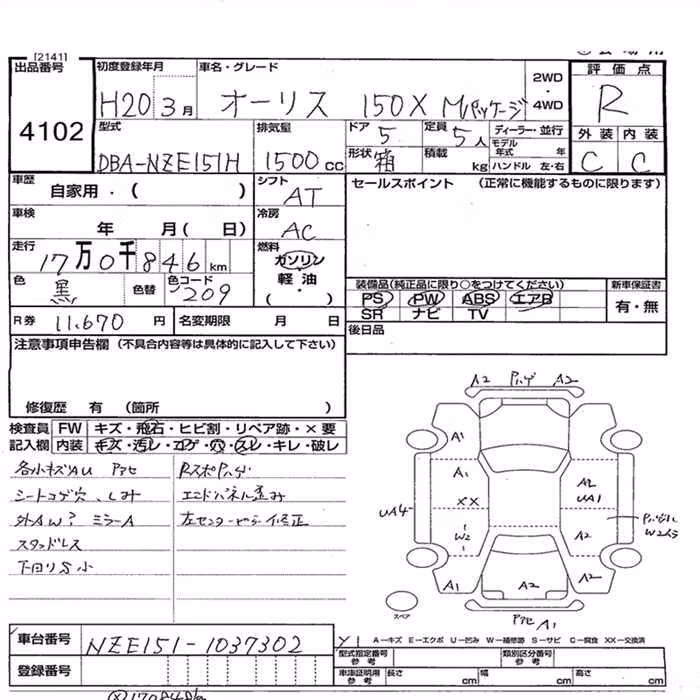 [2141]
出品番号
4102
初度登録年月
H20 3月
車名・グレード
オーリス 150X Mパッケージ
2WD
・
4WD
評価点
R
外装 内装
C C
型式
DBA-NZE151H
排気量
1500cc
ドア 5
定員 5人
ディーラー・並行
モデル年式 年
形状 箱
積載 kg
ハンドル 左・右
車歴
自家用・( )
シフト
AT
セールスポイント (正常に機能するものに限ります)
車検
年 月( 日)
冷房
AC
走行
17万0千846km
燃料
ガソリン
軽油
・
( )
色
黒
色替
色コード
209
装備品(純正品に限り○をつけてください)
新車保証書
PS PW ABS エアB
SR ナビ TV
有・無
R券 11,670円
名変期限 月 日
後日品
注意事項申告欄 (不具合内容等は具体的に記入して下さい)
修復歴 有 (箇所 )
検査員 FW キズ・飛石・ヒビ割・リペア跡・×要
記入欄 内装 キズ・汚レ・コゲ・穴・スレ・キレ・破レ
各小キズAU アセ
シートコゲ穴、しみ
外AW? ミラーA
スタッドレス
下回りS小
RスポハゲI
エンドパネル歪み
左センターピラー修正
A2 ハゲ A2
A1
A1
A2
UA1
XX
UA4
W2
A2
W2
A1
A2
A2
スペア
アセ A1
車台番号
NZE151-1037302
登録番号
Y1 A−キズ E−エクボ U−凹み W−補修跡 S−サビ C−腐食 XX−交換済
型式指定番号
参考
類別区分番号
参考
車庫証明用
参考
長さ cm
幅 cm
高さ cm